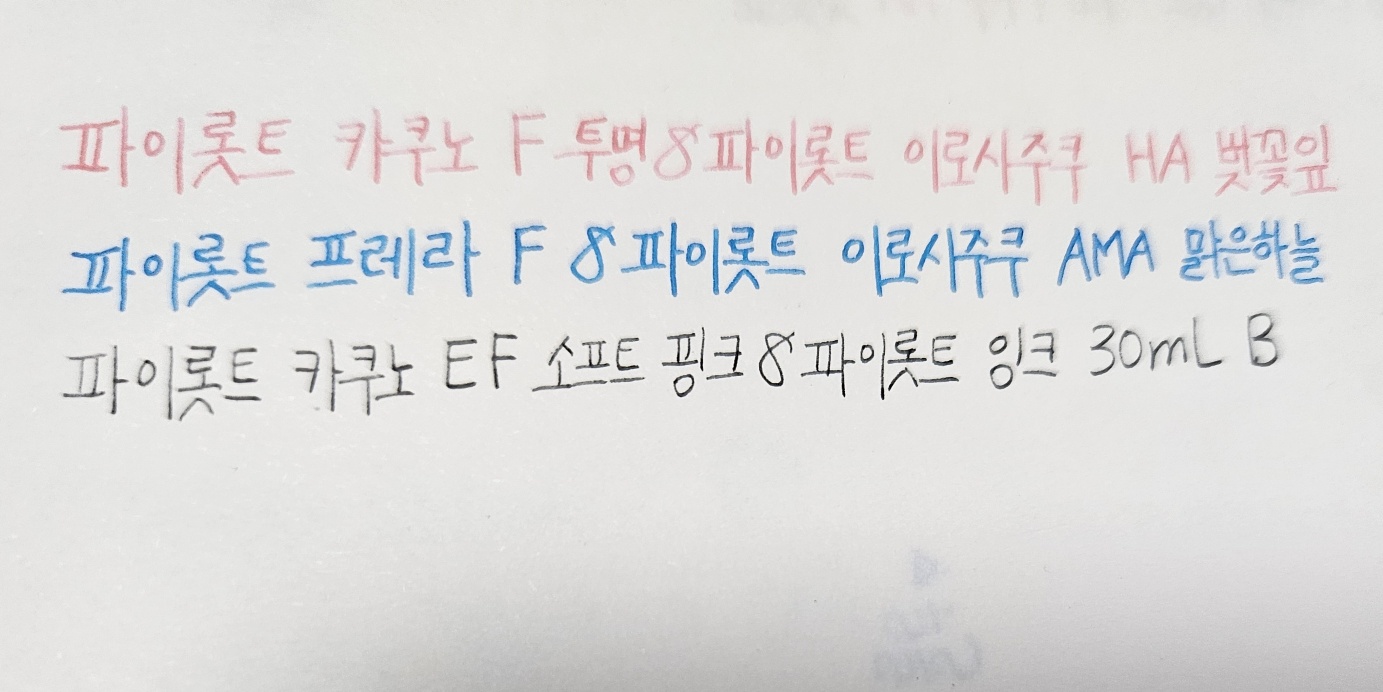 파이롯트 캬쿠노 F 투명 & 파이롯트 이로시주쿠 HA 벚꽃잎
파이롯트 프레라 F & 파이롯트 이로시주쿠 AMA 맑은하늘
파이롯트 카쿠노 EF 소프트 핑크 & 파이롯트 잉크 30mL B